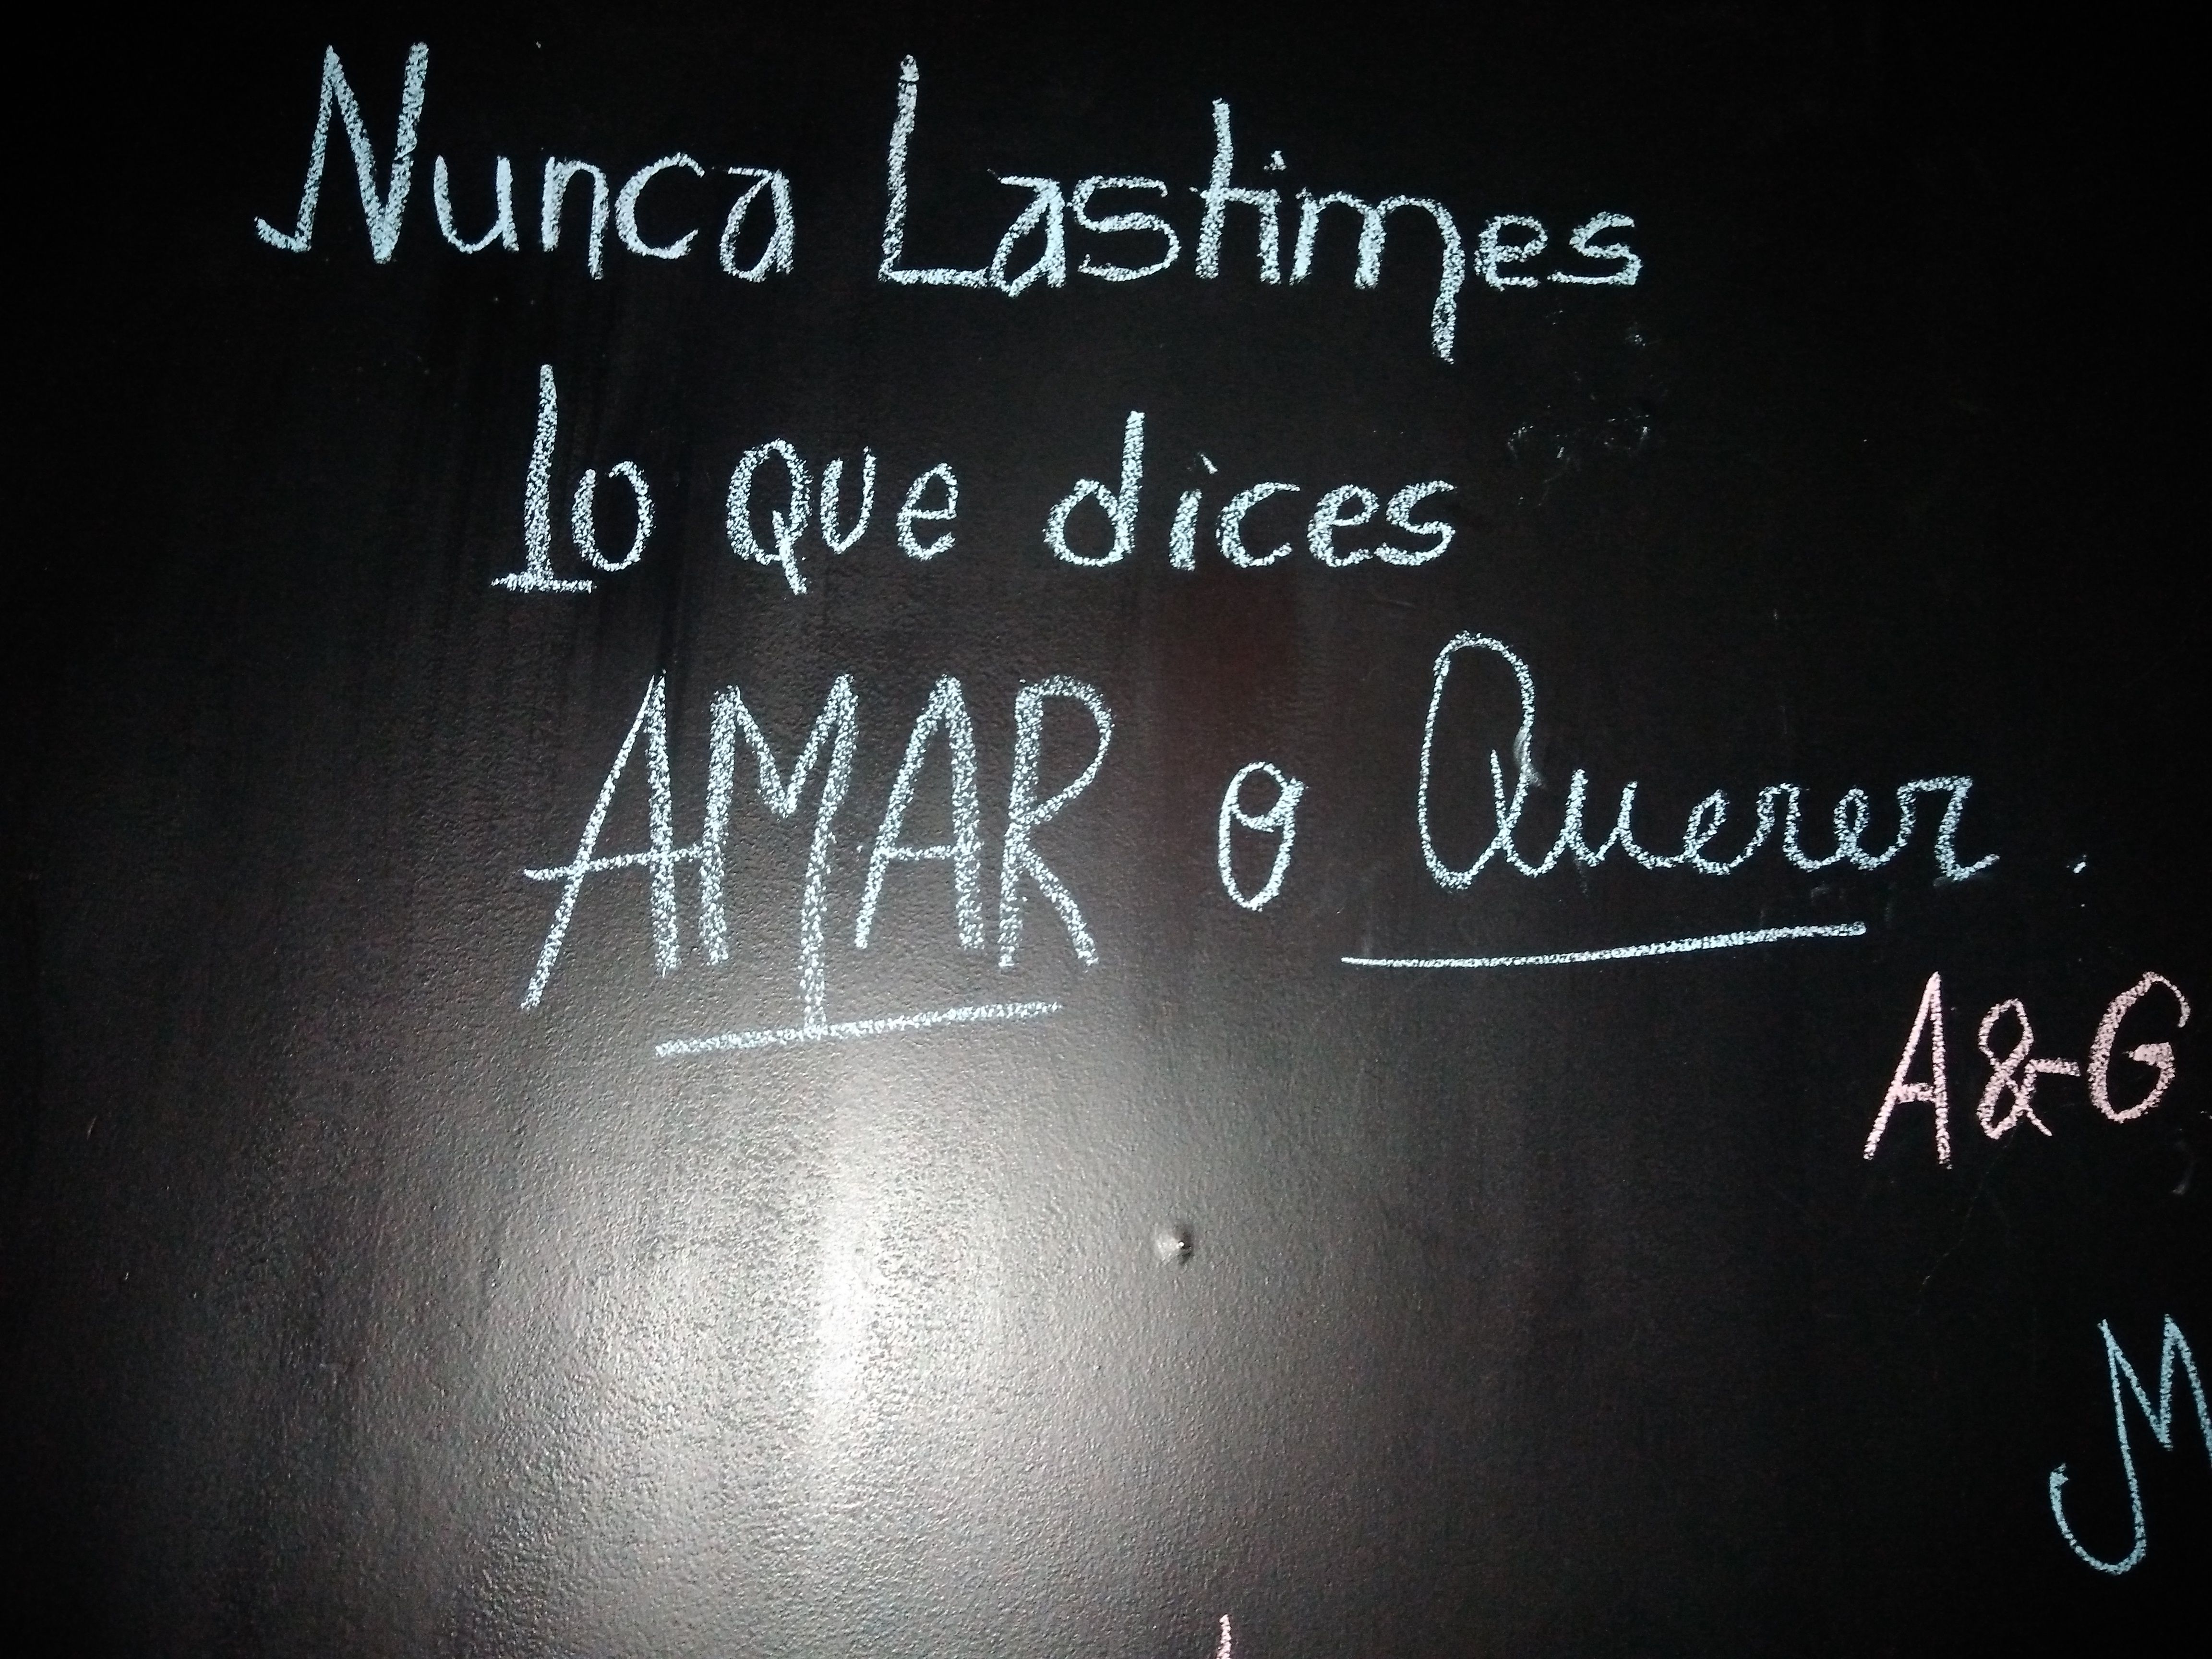 Nunca Lastimes
lo que dices
AMAR o Querer.
A&G
M